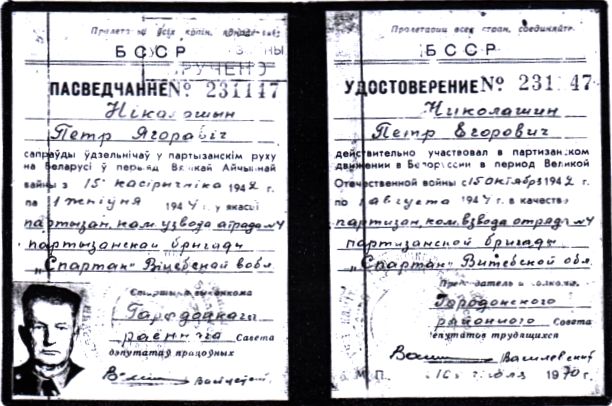 Пралетарыі ўсіх краін, яднайцеся!
БССР
ВРУЧЕНО
ПАСВЕДЧАННЕ № 231147
Нікалашын
Петр Ягоравіч
сапраўды ўдзельнічаў у партызанскім руху
на Беларусі ў перыяд Вялікай Айчыннай
вайны з 15 кастрычніка 1942 г.
па 1 жніўня 1944 г. у якасці
партызан, ком. узвода атрада №4
партызанскай брыгады
„Спартак“ Віцебскай вобл.
выканкома
Гарадоцкага
раённага Савета
дэпутатаў працоўных
Пролетарии всех стран, соединяйтесь!
БССР
УДОСТОВЕРЕНИЕ № 231147
Николашин
Петр Егорович
действительно участвовал в партизанском
движении в Белоруссии в период Великой
Отечественной войны с 15 октября 1942 г.
по 1 августа 1944 г. в качестве
партизан, ком. взвода отряда №4
партизанской бригады
„Спартак“ Витебской обл.
Председатель исполкома
Городокского
районного Совета
депутатов трудящихся
Василевский
М. П. 16 1970 г.